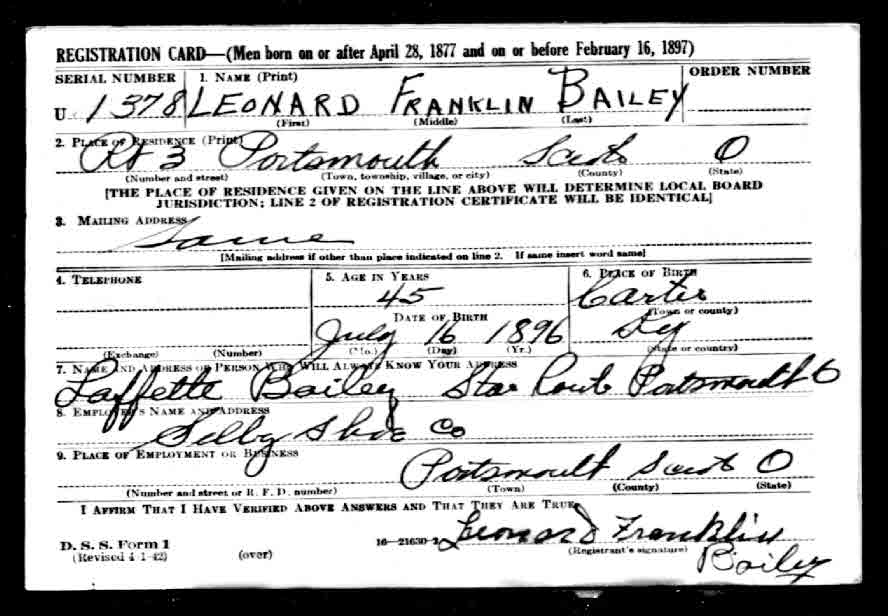 REGISTRATION CARD—(Men born on or after April 28, 1877 and on or before February 16, 1897)
SERIAL NUMBER 1. NAME (Print) ORDER NUMBER
U 1378 LEONARD FRANKLIN BAILEY
(First) (Middle) (Last)
2. PLACE OF RESIDENCE (Print)
Rt 3 Portsmouth Scioto O
(Number and street) (Town, township, village, or city) (County) (State)
[THE PLACE OF RESIDENCE GIVEN ON THE LINE ABOVE WILL DETERMINE LOCAL BOARD
JURISDICTION; LINE 2 OF REGISTRATION CERTIFICATE WILL BE IDENTICAL]
3. MAILING ADDRESS
Same
[Mailing address if other than place indicated on line 2. If same insert word same]
4. TELEPHONE 5. AGE IN YEARS 6. PLACE OF BIRTH
45 Carter
DATE OF BIRTH (Town or county)
July 16 1896 Ky
(Exchange) (Number) (Mo.) (Day) (Yr.) (State or country)
7. NAME AND ADDRESS OF PERSON WHO WILL ALWAYS KNOW YOUR ADDRESS
Laffette Bailey Star Route Portsmouth O
8. EMPLOYER'S NAME AND ADDRESS
Selby Shoe Co
9. PLACE OF EMPLOYMENT OR BUSINESS
Portsmouth Scioto O
(Number and street or R. F. D. number) (Town) (County) (State)
I AFFIRM THAT I HAVE VERIFIED ABOVE ANSWERS AND THAT THEY ARE TRUE.
D. S. S. Form 1 16—21630-2 Leonard Franklin
(Revised 4-1-42) (over) (Registrant's signature) Bailey